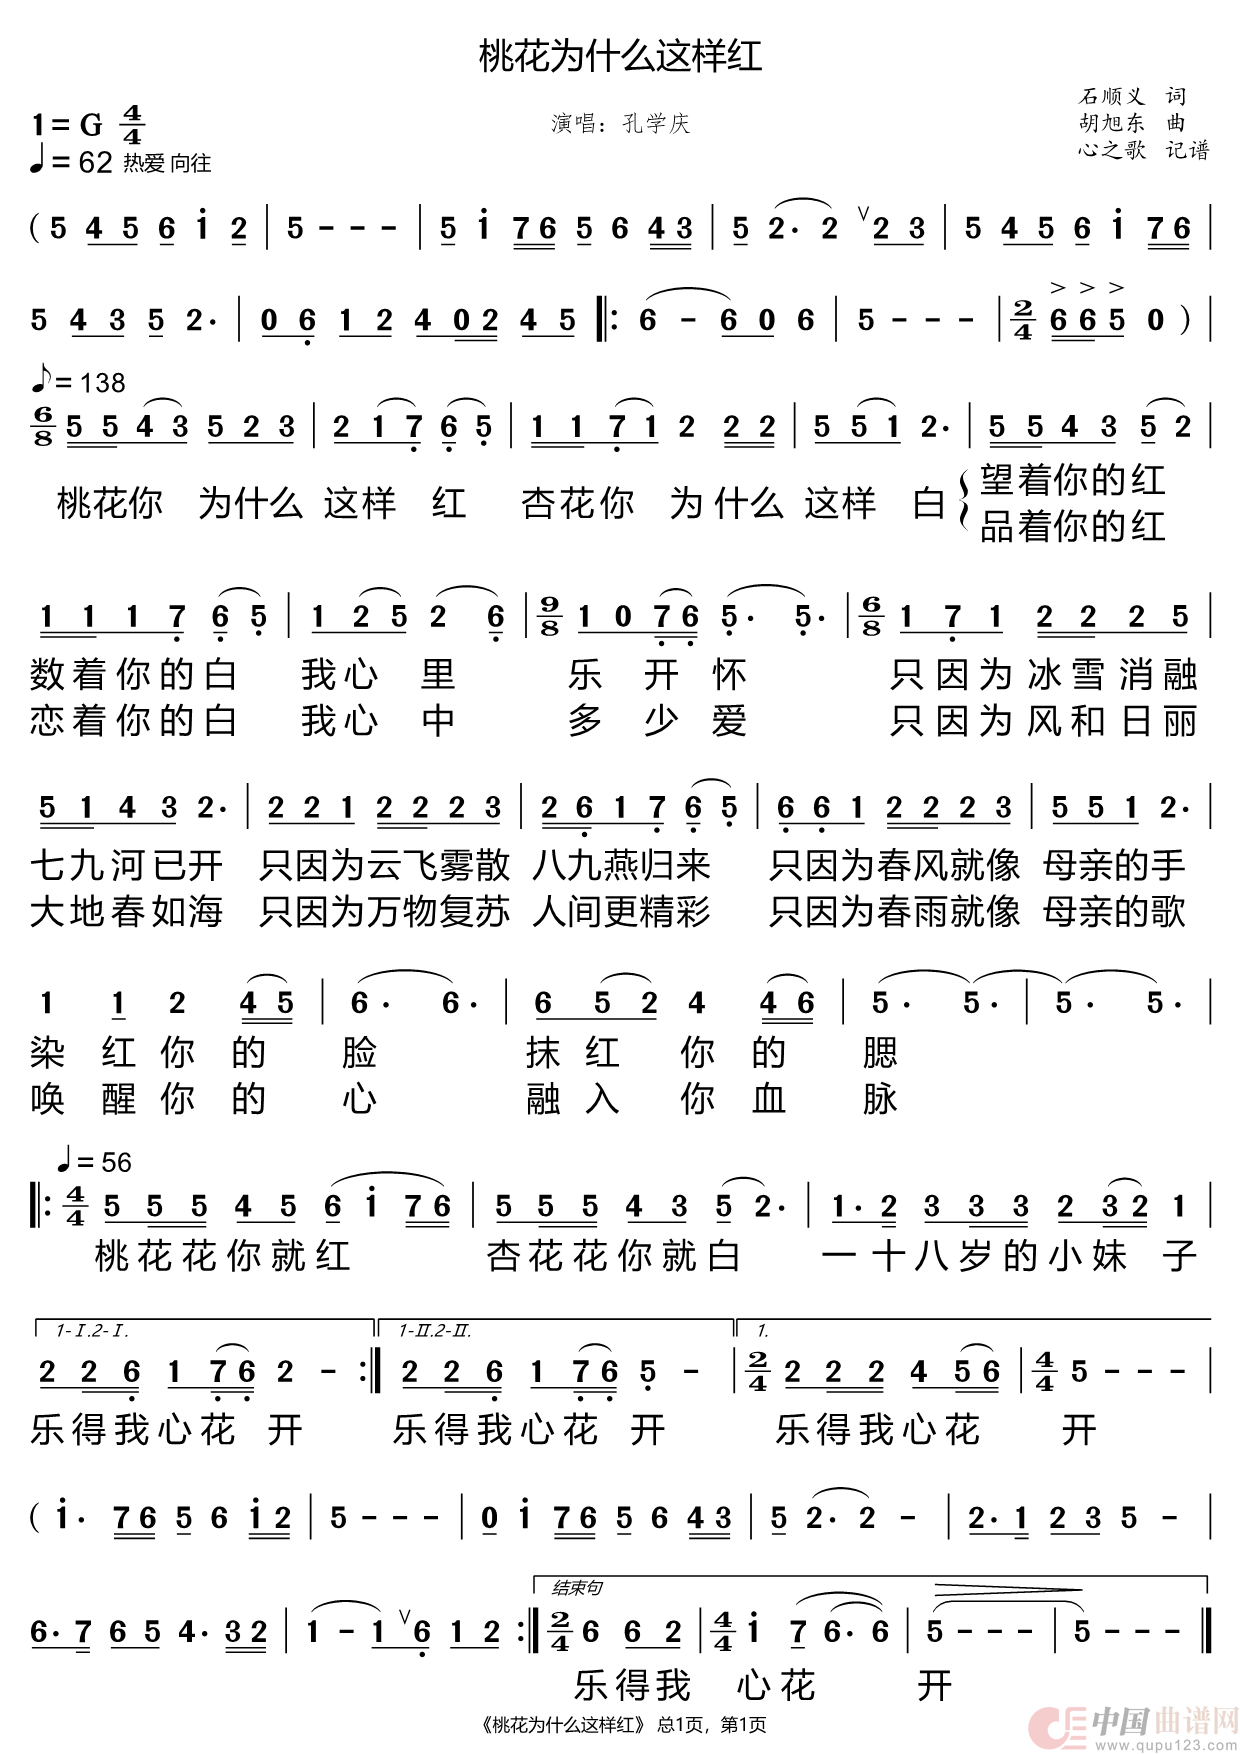 桃花为什么这样红
石顺义 词
1=G 4/4 演唱：孔学庆 胡旭东 曲
♩=62 热爱 向往 心之歌 记谱
( 5 4 5 6 i 2 | 5 - - - | 5 i 7 6 5 6 4 3 | 5 2 · 2 ∨ 2 3 | 5 4 5 6 i 7 6 |
5 4 3 5 2 · | 0 6 1 2 4 0 2 4 5 ‖: 6 - 6 0 6 | 5 - - - | 2/4 > > > 6 6 5 0 ) |
♪=138
6/8 5 5 4 3 5 2 3 | 2 1 7 6 5 | 1 1 7 1 2 2 2 | 5 5 1 2 · | 5 5 4 3 5 2 |
桃花你 为什么 这样 红 杏花你 为什么 这样 白 望着你的红
品着你的红
1 1 1 7 6 5 | 1 2 5 2 6 | 9/8 1 0 7 6 5 · 5 · | 6/8 1 7 1 2 2 2 5 |
数着你的白 我心里 乐开怀 只因为冰雪消融
恋着你的白 我心中 多少爱 只因为风和日丽
5 1 4 3 2 · | 2 2 1 2 2 2 3 | 2 6 1 7 6 5 | 6 6 1 2 2 2 3 | 5 5 1 2 · |
七九河已开 只因为云飞雾散 八九燕归来 只因为春风就像 母亲的手
大地春如海 只因为万物复苏 人间更精彩 只因为春雨就像 母亲的歌
1 1 2 4 5 | 6 · 6 · | 6 5 2 4 4 6 | 5 · 5 · | 5 · 5 · |
染红你的脸 抹红你的腮
唤醒你的心 融入你血脉
♩=56
‖: 4/4 5 5 5 4 5 6 i 7 6 | 5 5 5 4 3 5 2 · | 1 · 2 3 3 3 2 3 2 1 |
桃花花你就红 杏花花你就白 一十八岁的小妹子
1-Ⅰ.2-Ⅰ. 1-Ⅱ.2-Ⅱ. 1.
2 2 6 1 7 6 2 - :‖ 2 2 6 1 7 6 5 - | 2/4 2 2 2 4 5 6 | 4/4 5 - - - |
乐得我心花 开 乐得我心花 开 乐得我心花 开
( i · 7 6 5 6 i 2 | 5 - - - | 0 i 7 6 5 6 4 3 | 5 2 · 2 - | 2 · 1 2 3 5 - |
结束句
6 · 7 6 5 4 · 3 2 | 1 - 1 ∨ 6 1 2 :‖ 2/4 6 6 2 | 4/4 i 7 6 · 6 | 5 - - - | 5 - - - ‖
乐得我 心花 开
《桃花为什么这样红》 总1页，第1页
中国曲谱网
www.qupu123.com